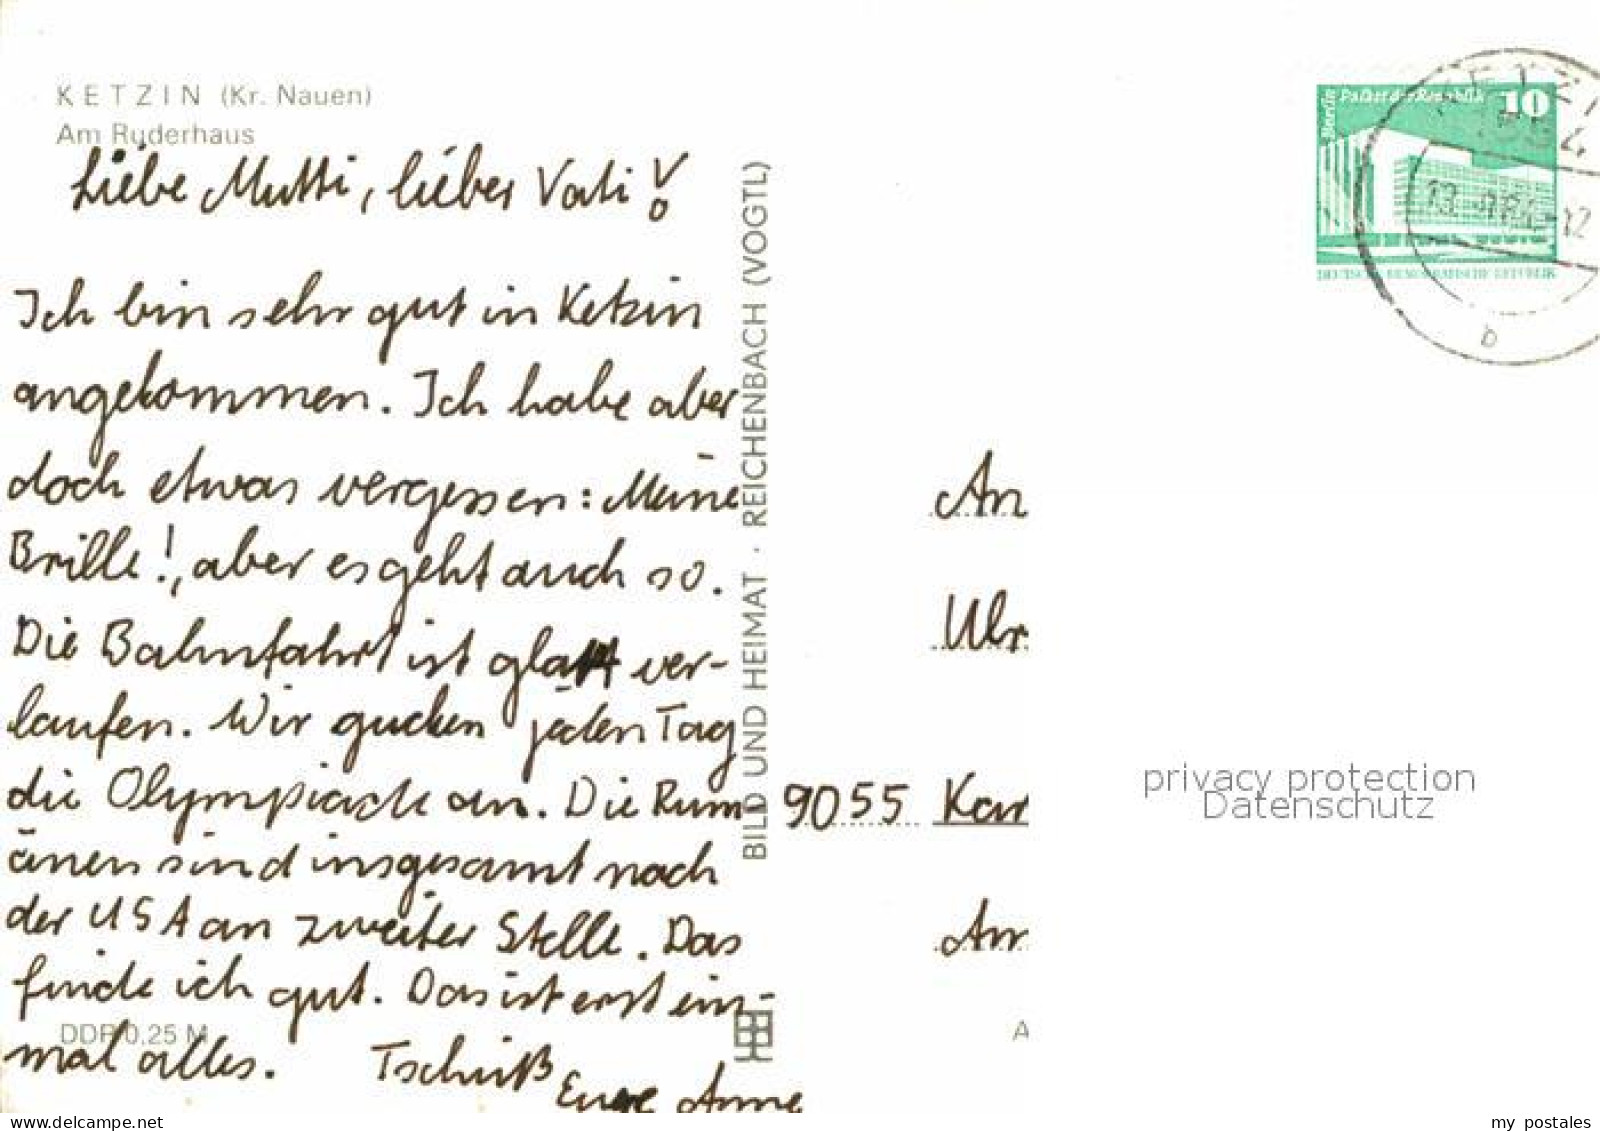 KETZIN (Kr. Nauen)
Am Ruderhaus
Liebe Mutti, lieber Vati!
Ich bin sehr gut in Ketzin
angekommen. Ich habe aber
doch etwas vergessen: Meine
Brille!, aber es geht auch so.
Die Bahnfahrt ist glatt ver-
laufen. Wir gucken jeden Tag
die Olympiade an. Die Rum
änen sind insgesamt nach
der USA an zweiter Stelle. Das
finde ich gut. Das ist erst ein-
mal alles. Tschüß
Eure Anne
DDR 0,25 M
BILD UND HEIMAT · REICHENBACH (VOGTL)
Berlin Palast der Republik 10
DEUTSCHE DEMOKRATISCHE REPUBLIK
b
An
9055 Kar
A
privacy protection
Datenschutz
www.delcampe.net
my_postales